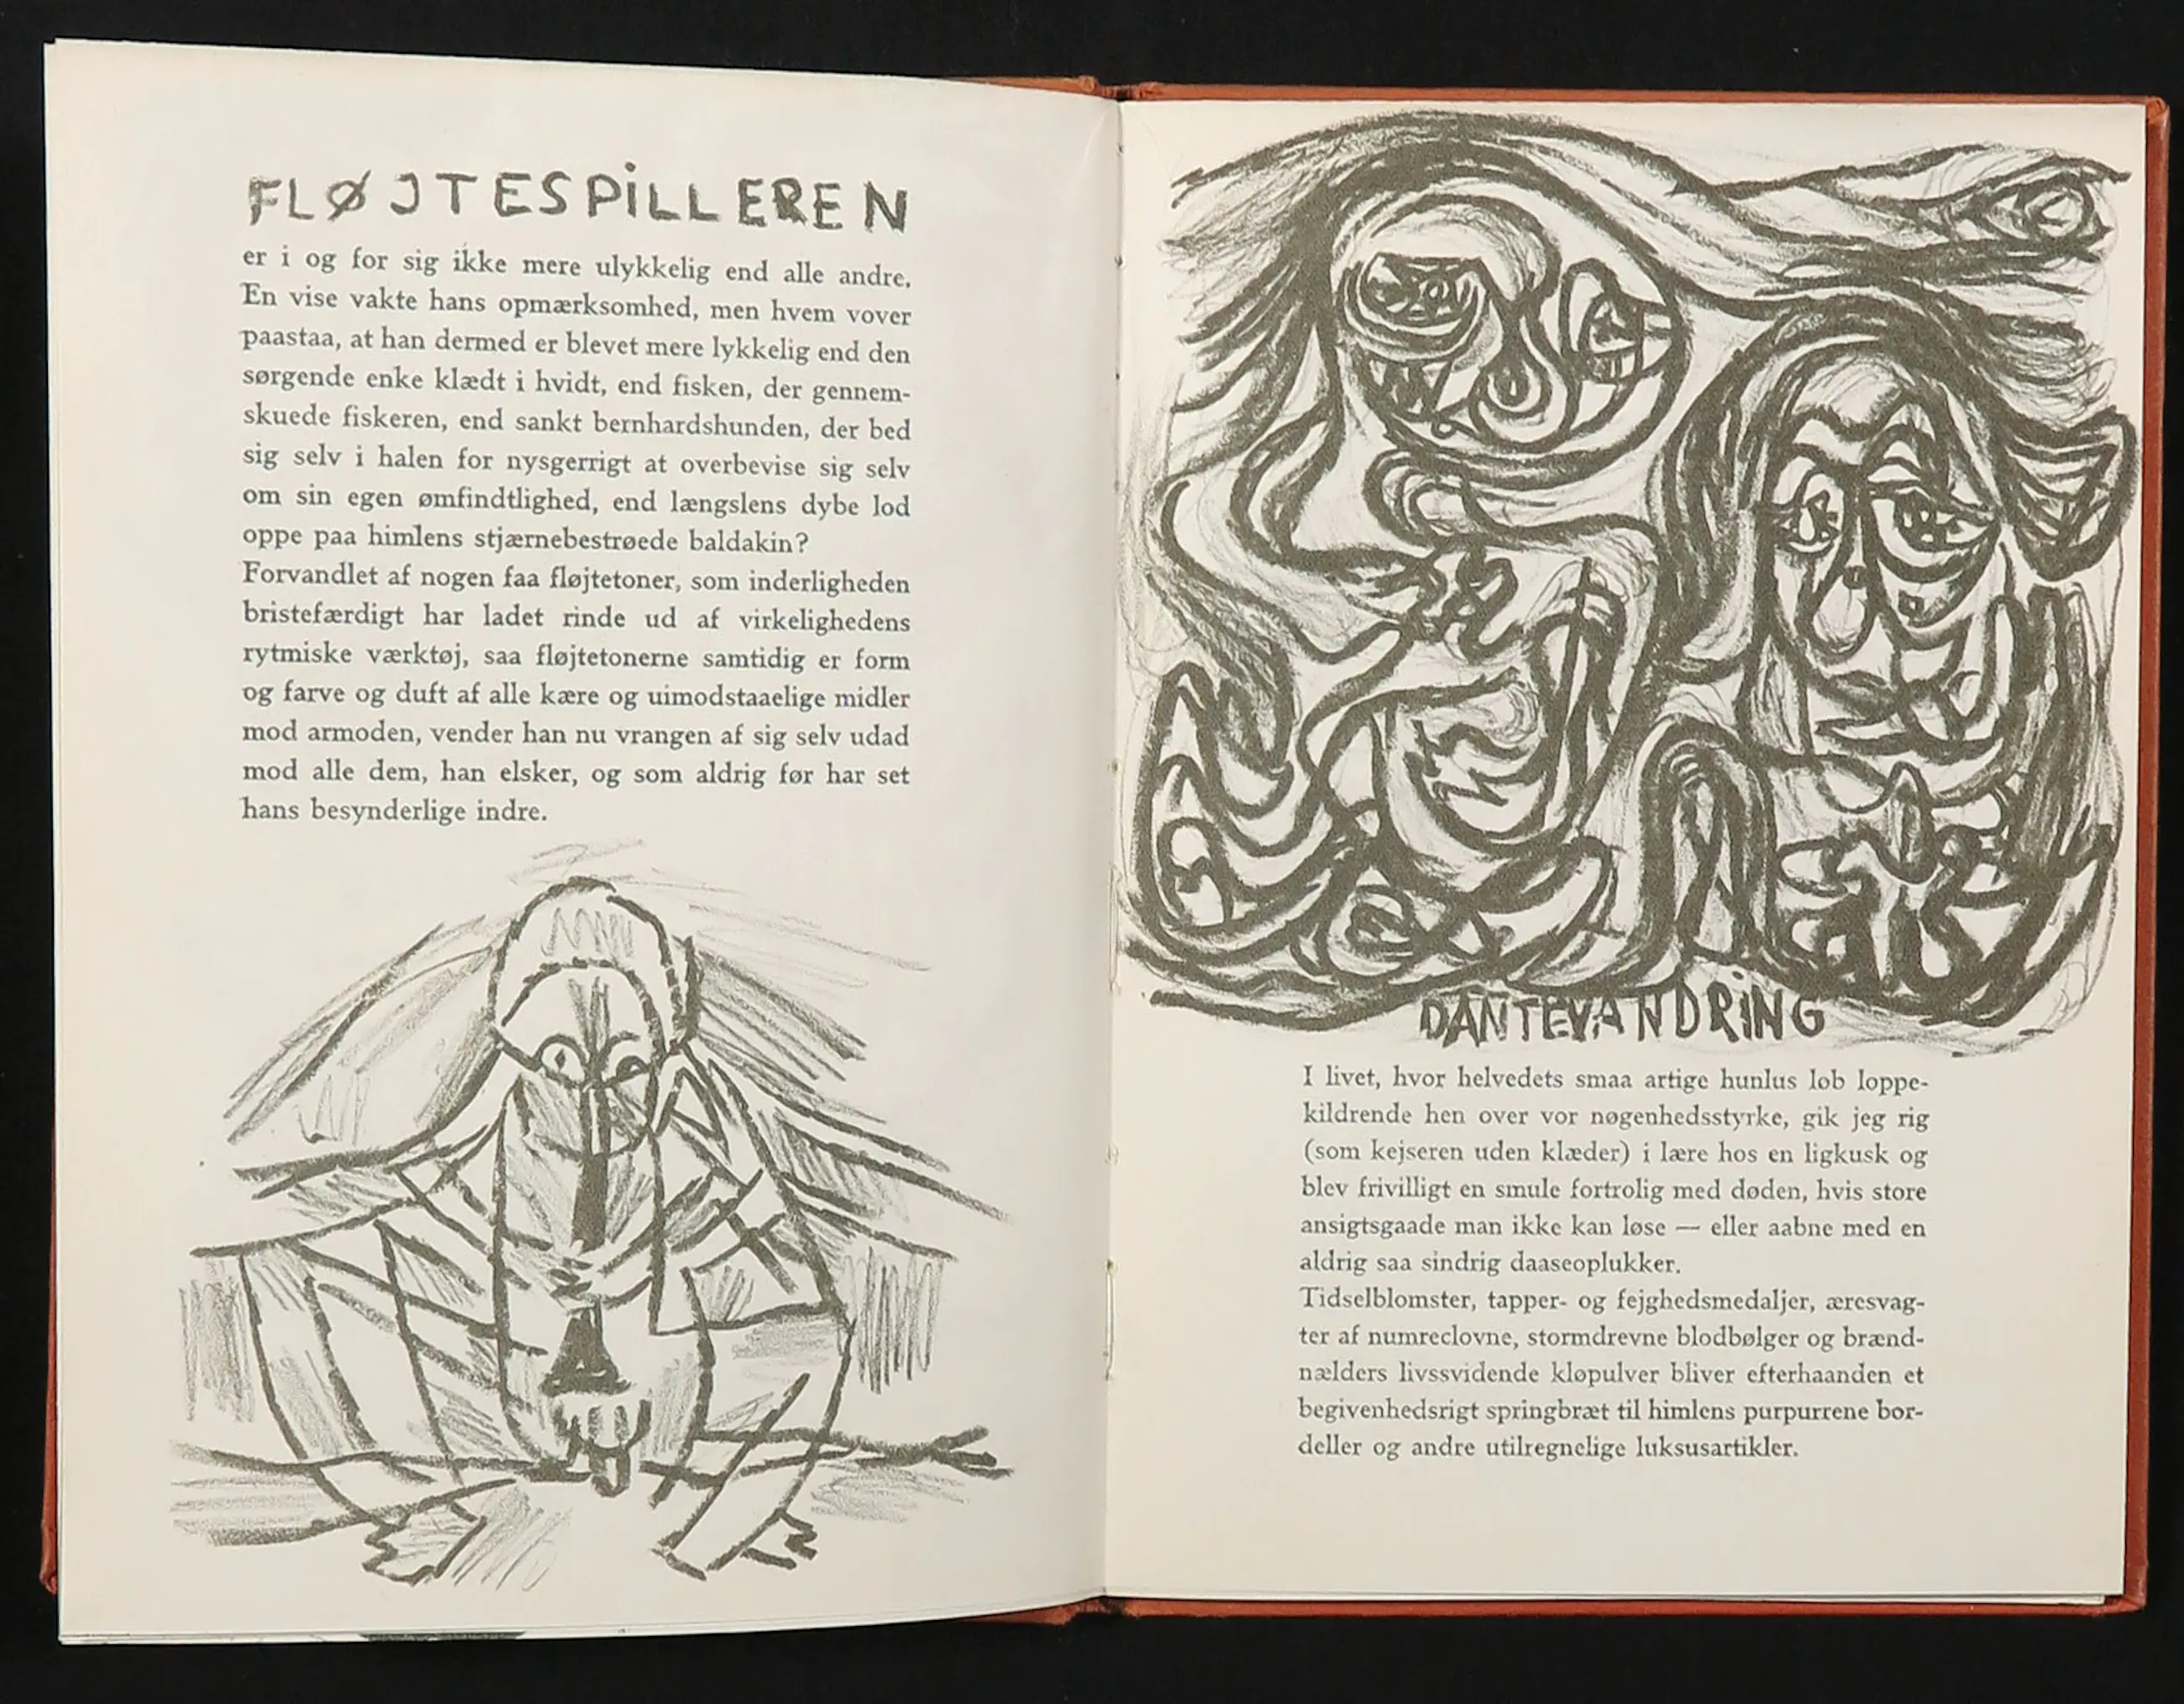 FLØJTESPILLEREN
er i og for sig ikke mere ulykkelig end alle andre.
En vise vakte hans opmærksomhed, men hvem vover
paastaa, at han dermed er blevet mere lykkelig end den
sørgende enke klædt i hvidt, end fisken, der gennem-
skuede fiskeren, end sankt bernhardshunden, der bed
sig selv i halen for nysgerrigt at overbevise sig selv
om sin egen ømfindtlighed, end længslens dybe lod
oppe paa himlens stjærnebestrøede baldakin?
Forvandlet af nogen faa fløjtetoner, som inderligheden
bristefærdigt har ladet rinde ud af virkelighedens
rytmiske værktøj, saa fløjtetonerne samtidig er form
og farve og duft af alle kære og uimodstaaelige midler
mod armoden, vender han nu vrangen af sig selv udad
mod alle dem, han elsker, og som aldrig før har set
hans besynderlige indre.
DANTEVANDRING
I livet, hvor helvedets smaa artige hunlus løb loppe-
kildrende hen over vor nøgenhedsstyrke, gik jeg rig
(som kejseren uden klæder) i lære hos en ligkusk og
blev frivilligt en smule fortrolig med døden, hvis store
ansigtsgaade man ikke kan løse — eller aabne med en
aldrig saa sindrig daaseoplukker.
Tidselblomster, tapper- og fejghedsmedaljer, æresvag-
ter af numreclovne, stormdrevne blodbølger og brænd-
nælders livssvidende kløpulver bliver efterhaanden et
begivenhedsrigt springbræt til himlens purpurrene bor-
deller og andre utilregnelige luksusartikler.